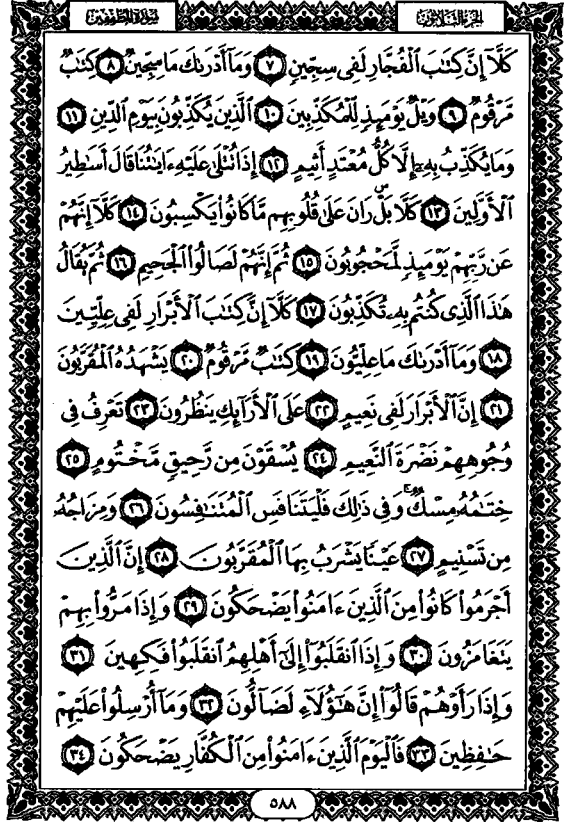 الجزء الثلاثون
سورة المطففين
كَلَّآ إِنَّ كِتَـٰبَ ٱلْفُجَّارِ لَفِى سِجِّينٍ ٧ وَمَآ أَدْرَىٰكَ مَا سِجِّينٌ ٨ كِتَـٰبٌ
مَّرْقُومٌ ٩ وَيْلٌ يَوْمَئِذٍ لِّلْمُكَذِّبِينَ ١٠ ٱلَّذِينَ يُكَذِّبُونَ بِيَوْمِ ٱلدِّينِ ١١
وَمَا يُكَذِّبُ بِهِۦٓ إِلَّا كُلُّ مُعْتَدٍ أَثِيمٍ ١٢ إِذَا تُتْلَىٰ عَلَيْهِ ءَايَـٰتُنَا قَالَ أَسَـٰطِيرُ
ٱلْأَوَّلِينَ ١٣ كَلَّا بَلْ رَانَ عَلَىٰ قُلُوبِهِم مَّا كَانُوا۟ يَكْسِبُونَ ١٤ كَلَّآ إِنَّهُمْ
عَن رَّبِّهِمْ يَوْمَئِذٍ لَّمَحْجُوبُونَ ١٥ ثُمَّ إِنَّهُمْ لَصَالُوا۟ ٱلْجَحِيمِ ١٦ ثُمَّ يُقَالُ
هَـٰذَا ٱلَّذِى كُنتُم بِهِۦ تُكَذِّبُونَ ١٧ كَلَّآ إِنَّ كِتَـٰبَ ٱلْأَبْرَارِ لَفِى عِلِّيِّينَ
١٨ وَمَآ أَدْرَىٰكَ مَا عِلِّيُّونَ ١٩ كِتَـٰبٌ مَّرْقُومٌ ٢٠ يَشْهَدُهُ ٱلْمُقَرَّبُونَ
٢١ إِنَّ ٱلْأَبْرَارَ لَفِى نَعِيمٍ ٢٢ عَلَى ٱلْأَرَآئِكِ يَنظُرُونَ ٢٣ تَعْرِفُ فِى
وُجُوهِهِمْ نَضْرَةَ ٱلنَّعِيمِ ٢٤ يُسْقَوْنَ مِن رَّحِيقٍ مَّخْتُومٍ ٢٥
خِتَـٰمُهُۥ مِسْكٌ ۚ وَفِى ذَٰلِكَ فَلْيَتَنَافَسِ ٱلْمُتَنَـٰفِسُونَ ٢٦ وَمِزَاجُهُۥ
مِن تَسْنِيمٍ ٢٧ عَيْنًا يَشْرَبُ بِهَا ٱلْمُقَرَّبُونَ ٢٨ إِنَّ ٱلَّذِينَ
أَجْرَمُوا۟ كَانُوا۟ مِنَ ٱلَّذِينَ ءَامَنُوا۟ يَضْحَكُونَ ٢٩ وَإِذَا مَرُّوا۟ بِهِمْ
يَتَغَامَزُونَ ٣٠ وَإِذَا ٱنقَلَبُوٓا۟ إِلَىٰٓ أَهْلِهِمُ ٱنقَلَبُوا۟ فَكِهِينَ ٣١
وَإِذَا رَأَوْهُمْ قَالُوٓا۟ إِنَّ هَـٰٓؤُلَآءِ لَضَآلُّونَ ٣٢ وَمَآ أُرْسِلُوا۟ عَلَيْهِمْ
حَـٰفِظِينَ ٣٣ فَٱلْيَوْمَ ٱلَّذِينَ ءَامَنُوا۟ مِنَ ٱلْكُفَّارِ يَضْحَكُونَ ٣٤
٥٨٨